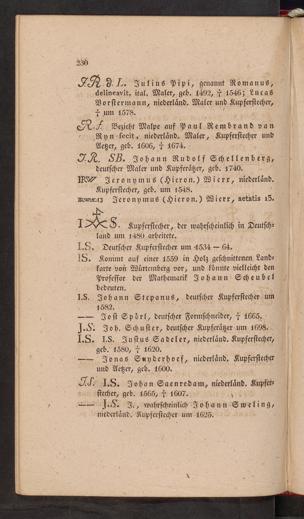 230
J.R ∂. L. Julius Pipi, genannt Romanus,
delineavit, ital. Maler, geb. 1492, † 1546; Lucas
Vorstermann, niederländ. Maler und Kupferstecher,
† um 1578.
R. f. Bezieht Malpe auf Paul Rembrand van
Ryn fecit, niederländ. Maler, Kupferstecher und
Aetzer, geb. 1606, † 1674.
J.R. SB. Johann Rudolf Schellenberg,
deutscher Maler und Kupferätzer, geb. 1740.
Jeronymus (Hieron.) Wierx, niederländ.
Kupferstecher, geb. um 1548.
Jeronymus (Hieron.) Wierx, aetatis 13.
I S. Kupferstecher, der wahrscheinlich in Deutsch-
land um 1480 arbeitete.
I.S. Deutscher Kupferstecher um 1534 — 64.
IS. Kommt auf einer 1559 in Holz geschnittenen Land-
karte von Würtemberg vor, und könnte vielleicht den
Professor der Mathematik Johann Scheubel
bedeuten.
I.S. Johann Stepanus, deutscher Kupferstecher um
1582.
—— Jost Spörl, deutscher Formschneider, † 1665.
J.S. Joh. Schuster, deutscher Kupferätzer um 1698.
I.S. I.S. Justus Sadeler, niederländ. Kupferstecher,
geb. 1580, † 1620.
—— Jonas Snyderhoef, niederländ. Kupferstecher
und Aetzer, geb. 1600.
J.S. I.S. Johan Saenredam, niederländ. Kupfer-
stecher, geb. 1565, † 1607.
—— J.S. J., wahrscheinlich Johann Sweling,
niederländ. Kupferstecher um 1625.